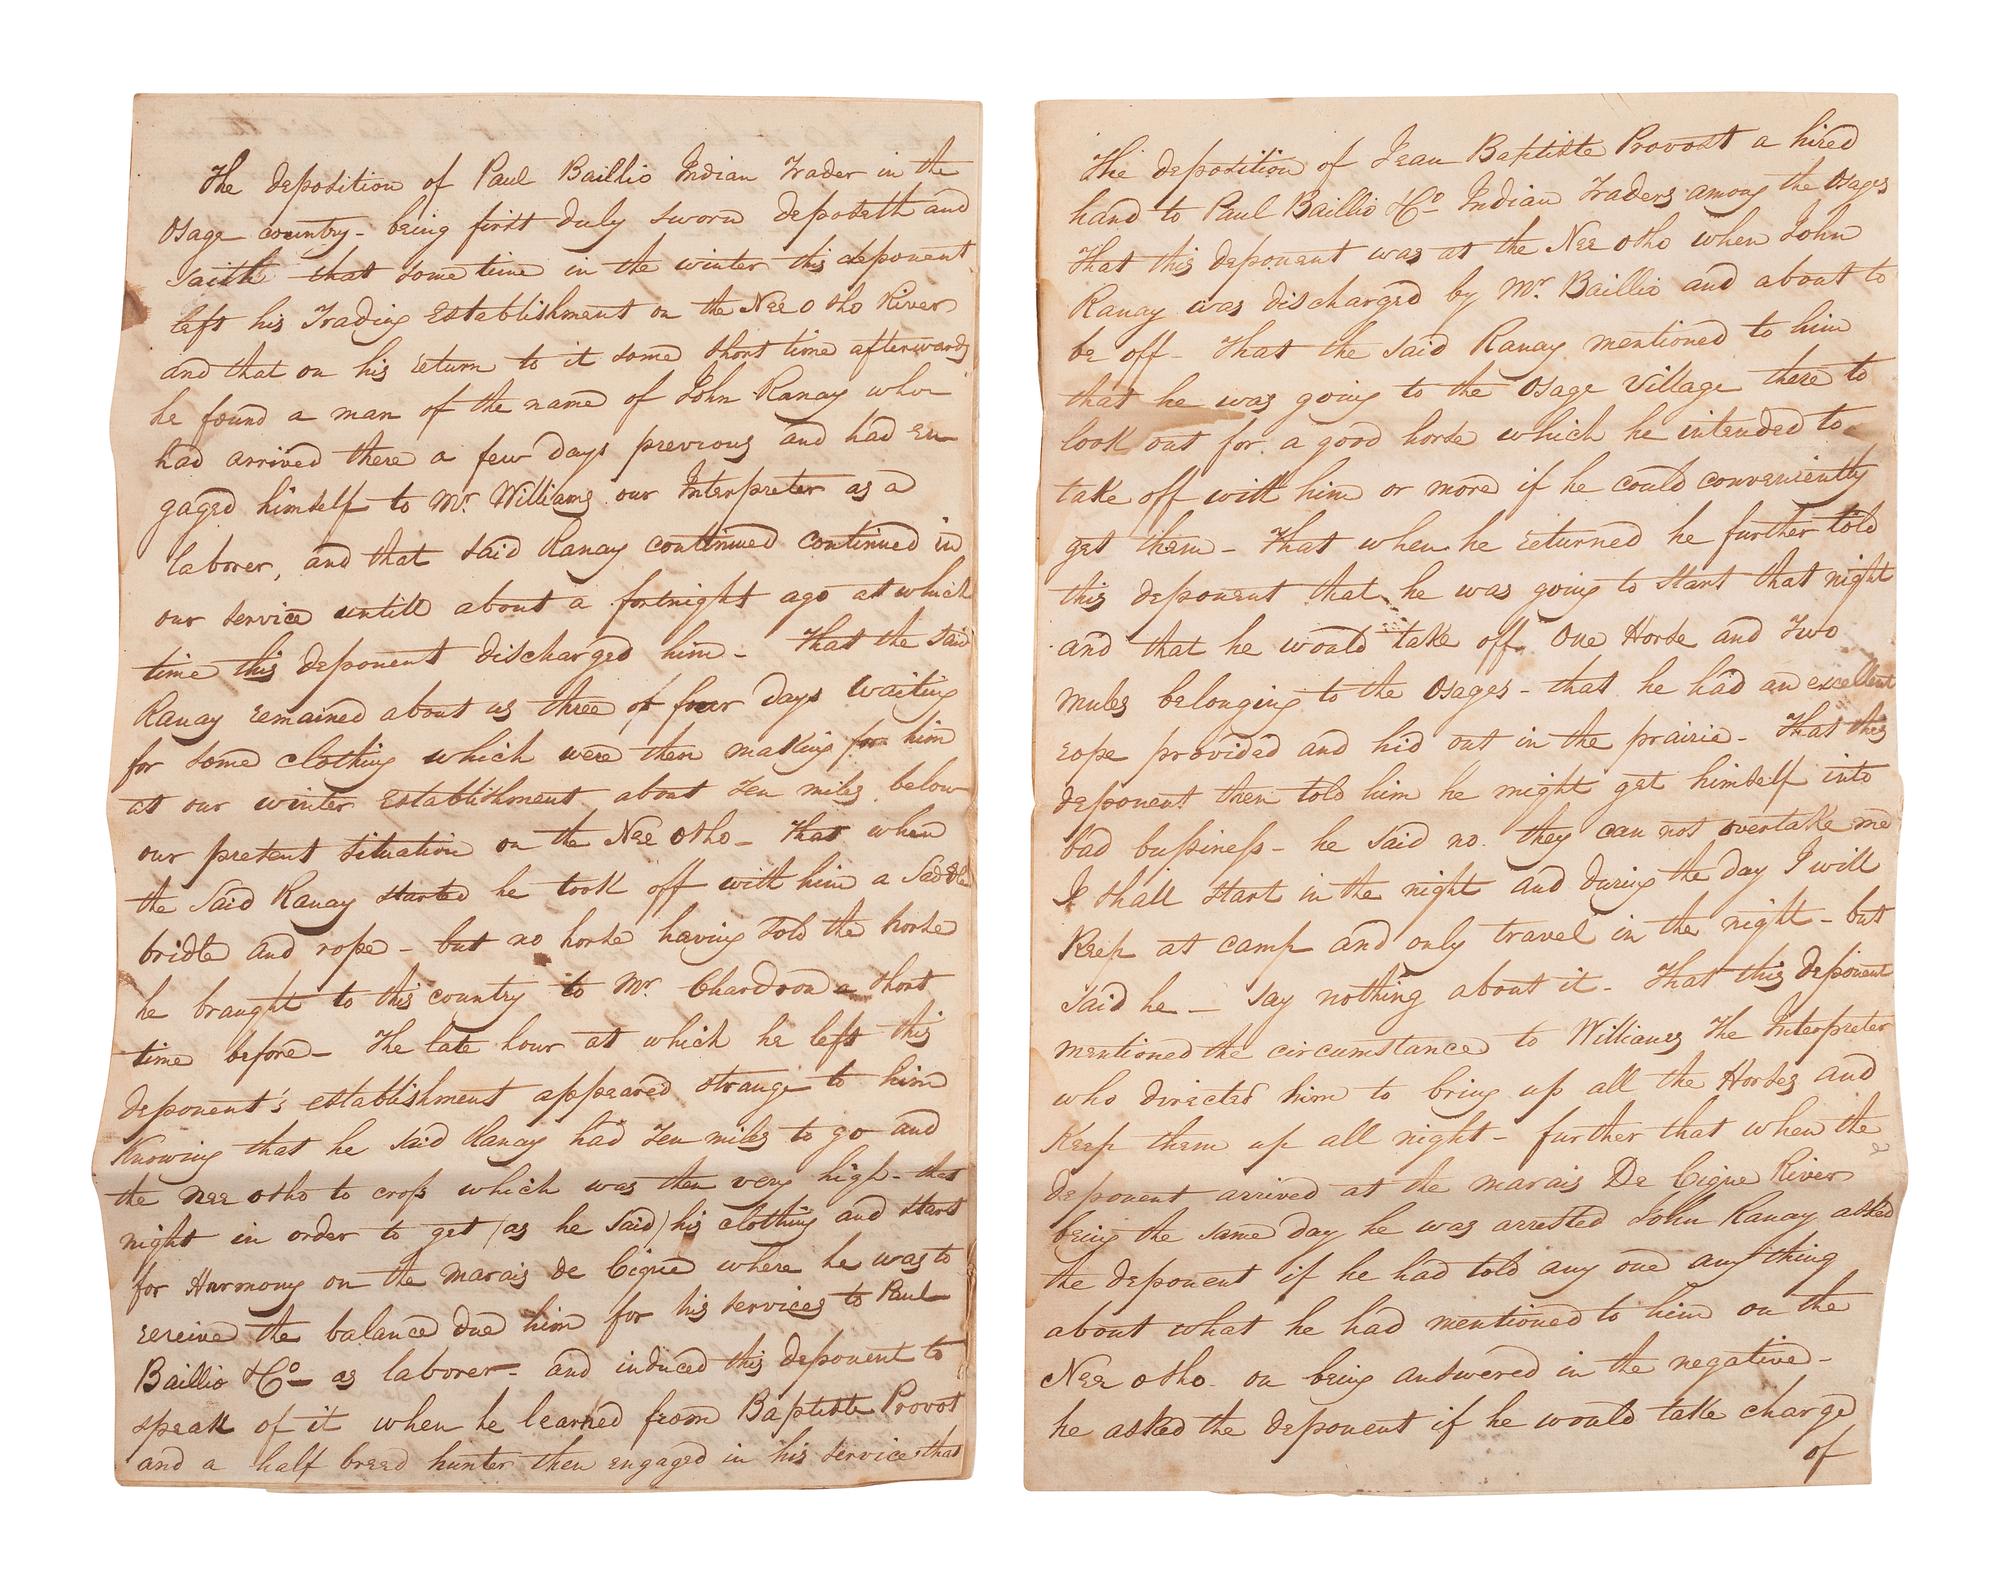 The deposition of Paul Baillio Indian Trader in the
Osage country - being first duly sworn deposeth and
saith that some time in the winter this deponent
left his Trading Establishment on the Nee O sho River
and that on his return to it some short time afterwards
he found a man of the name of John Ranay who
had arrived there a few days previous and had en-
gaged himself to Mr. Williams our Interpreter as a
laborer, and that said Ranay continued continued in
our service untill about a fortnight ago at which
time this deponent discharged him - That the said
Ranay remained about us three of four days waiting
for some clothing which were then making for him
at our winter Establishment about Ten miles below
our present situation on the Nee Osho - That when
the said Ranay started he took off with him a Saddle
bridle and rope - but no horse having sold the horse
he braught to this country to Mr. Chardron a short
time before - The late hour at which he left this
deponent's establishment appeared strange to him
Knowing that he said Ranay had Ten miles to go and
the nee osho to cross which was then very high - that
night in order to get (as he said) his clothing and start
for Harmony on the Marais De Cigne where he was to
receive the balance due him for his services to Paul
Baillio & Co - as laborer - and induced this deponent to
speak of it when he learned from Baptiste Provot
and a half breed hunter then engaged in his service that
The deposition of Jean Baptiste Provost a hired
hand to Paul Baillio & Co - Indian Traders among the Osages
That this deponent was at the Nee Osho when John
Ranay was discharged by Mr. Baillio and about to
be off - That the said Ranay mentioned to him
that he was going to the Osage Village there to
look out for a good horse which he intended to
take off with him or more if he could conveniently
get them - That when he returned he further told
this deponent that he was going to start that night
and that he would take off One Horse and Two
Mules belonging to the Osages - that he had an excellent
rope provided and hid out in the prairie - That this
deponent then told him he might get himself into
bad bussiness - he said no. they can not overtake me
I shall start in the night and during the day I will
Keep at camp and only travel in the night - but
said he - say nothing about it - That this deponent
mentioned the circumstance to Williams The Interpreter
who directed him to bring up all the Horses and
Keep them up all night - further that when the
deponent arrived at the marais De Cigne River
being the same day he was arrested John Ranay asked
the deponent if he had told any one any thing
about what he had mentioned to him on the
Nee osho. on being answered in the negative -
he asked the deponent if he would take charge
of